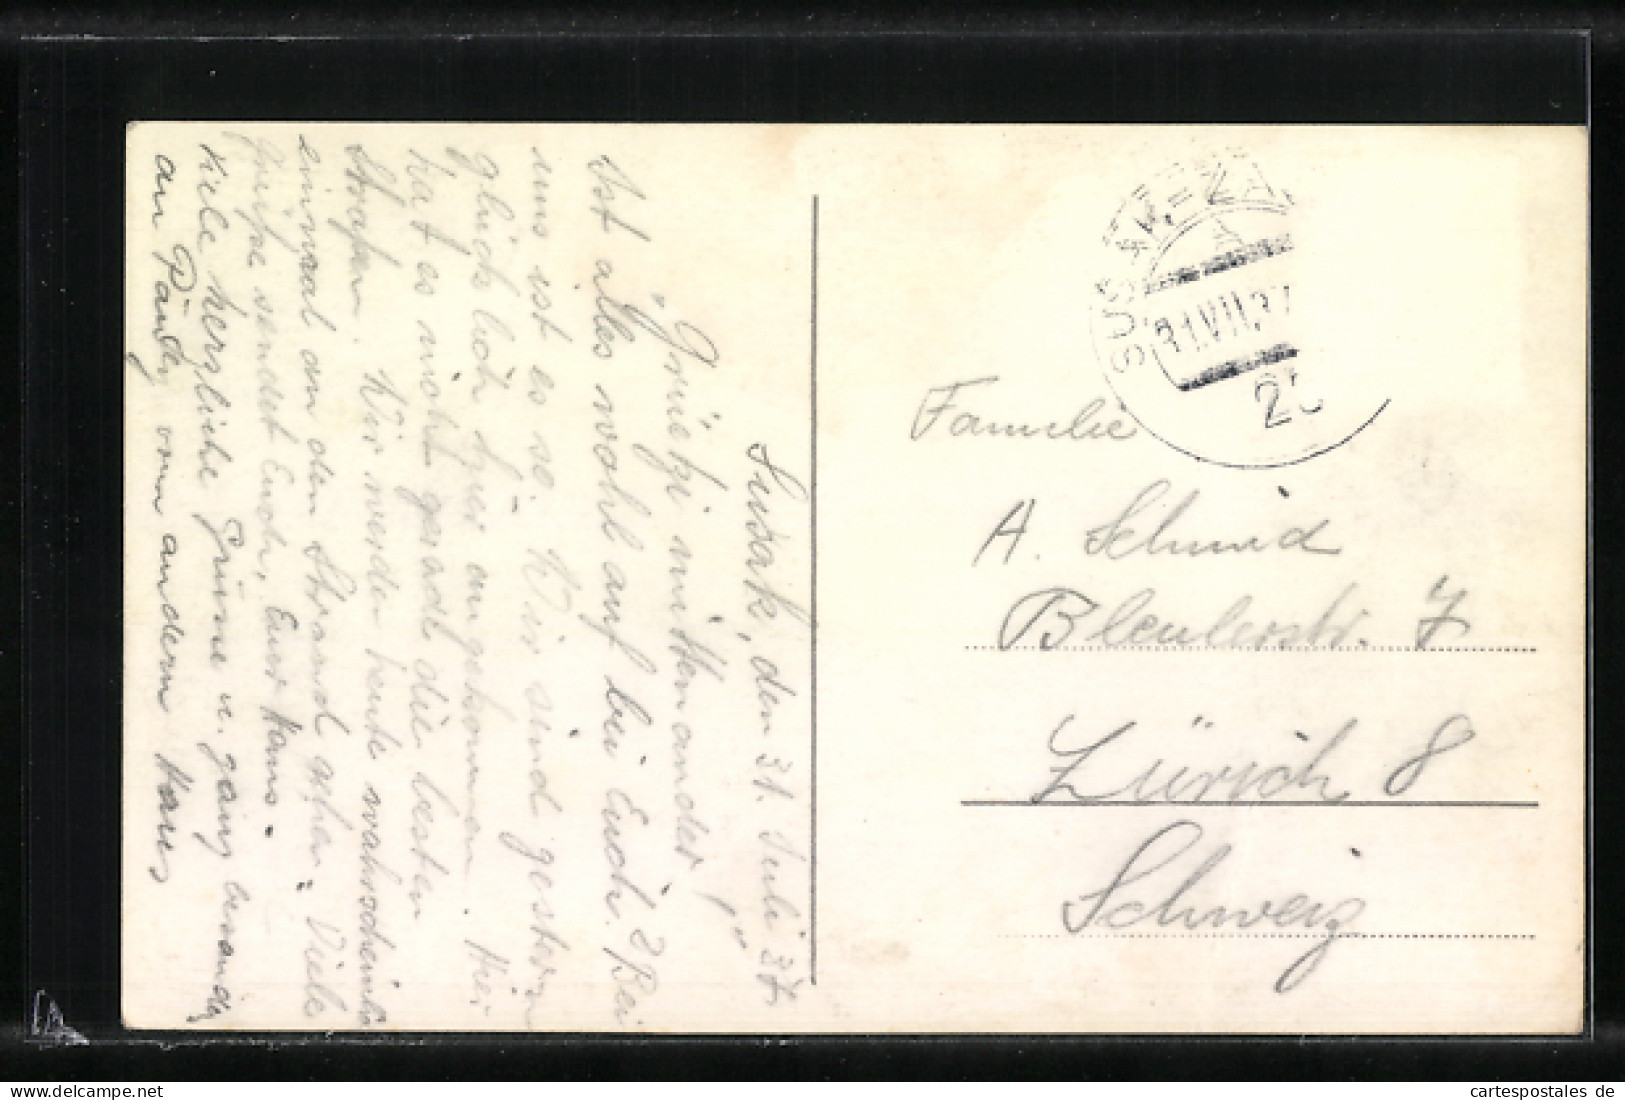 Susak, den 31. Juli 37.
„Grüezi mittenander!“
Ist alles wohl auf bei Euch? Bei
uns ist es so. Wir sind gestern
glücklich hier angekommen. Hier
hat es nicht gerade die besten
Strassen. Wir werden heute wahrscheinlich
einmal an den Strand gehen. Viele
Grüsse sendet Euch, Euer Hans.
Viele herzliche Grüsse u. ganz besonders
an vom andern Hans
SUSAK-ZA
31.VII.37
Familie
A. Schmid
Bleulerstr. 7
Zürich 8
Schweiz
cartespostales de